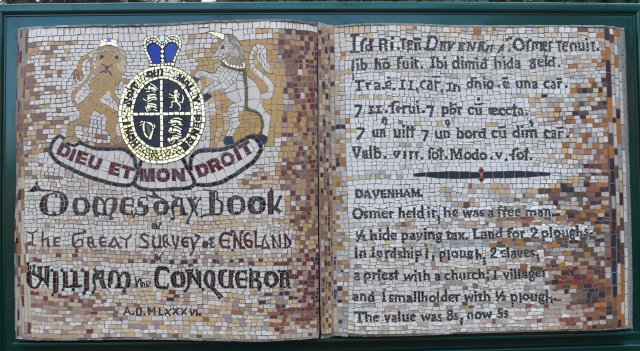 DIEU ET MON DROIT
Domesday Book
or
The GREAT SURVEY of ENGLAND
of
William the Conqueror
A.D. MLXXXVI.
Ten DAVENHA Osmer tenuit.
lib hō fuit. Ibi dimid hida geld.
Tra.ē. II. car. In dnio. ē una car.
7 II. serui. 7 pbr cū
7 un uiff 7 un bord cū dim car.
Valb. VIII. sol. Modo. v. sol.
DAVENHAM.
Osmer held it, he was a free man.
½ hide paying tax. Land for 2 ploughs.
In lordship 1 plough, 2 slaves,
a priest with a church, 1 villager
and 1 smallholder with ½ plough.
The value was 8s, now 5s